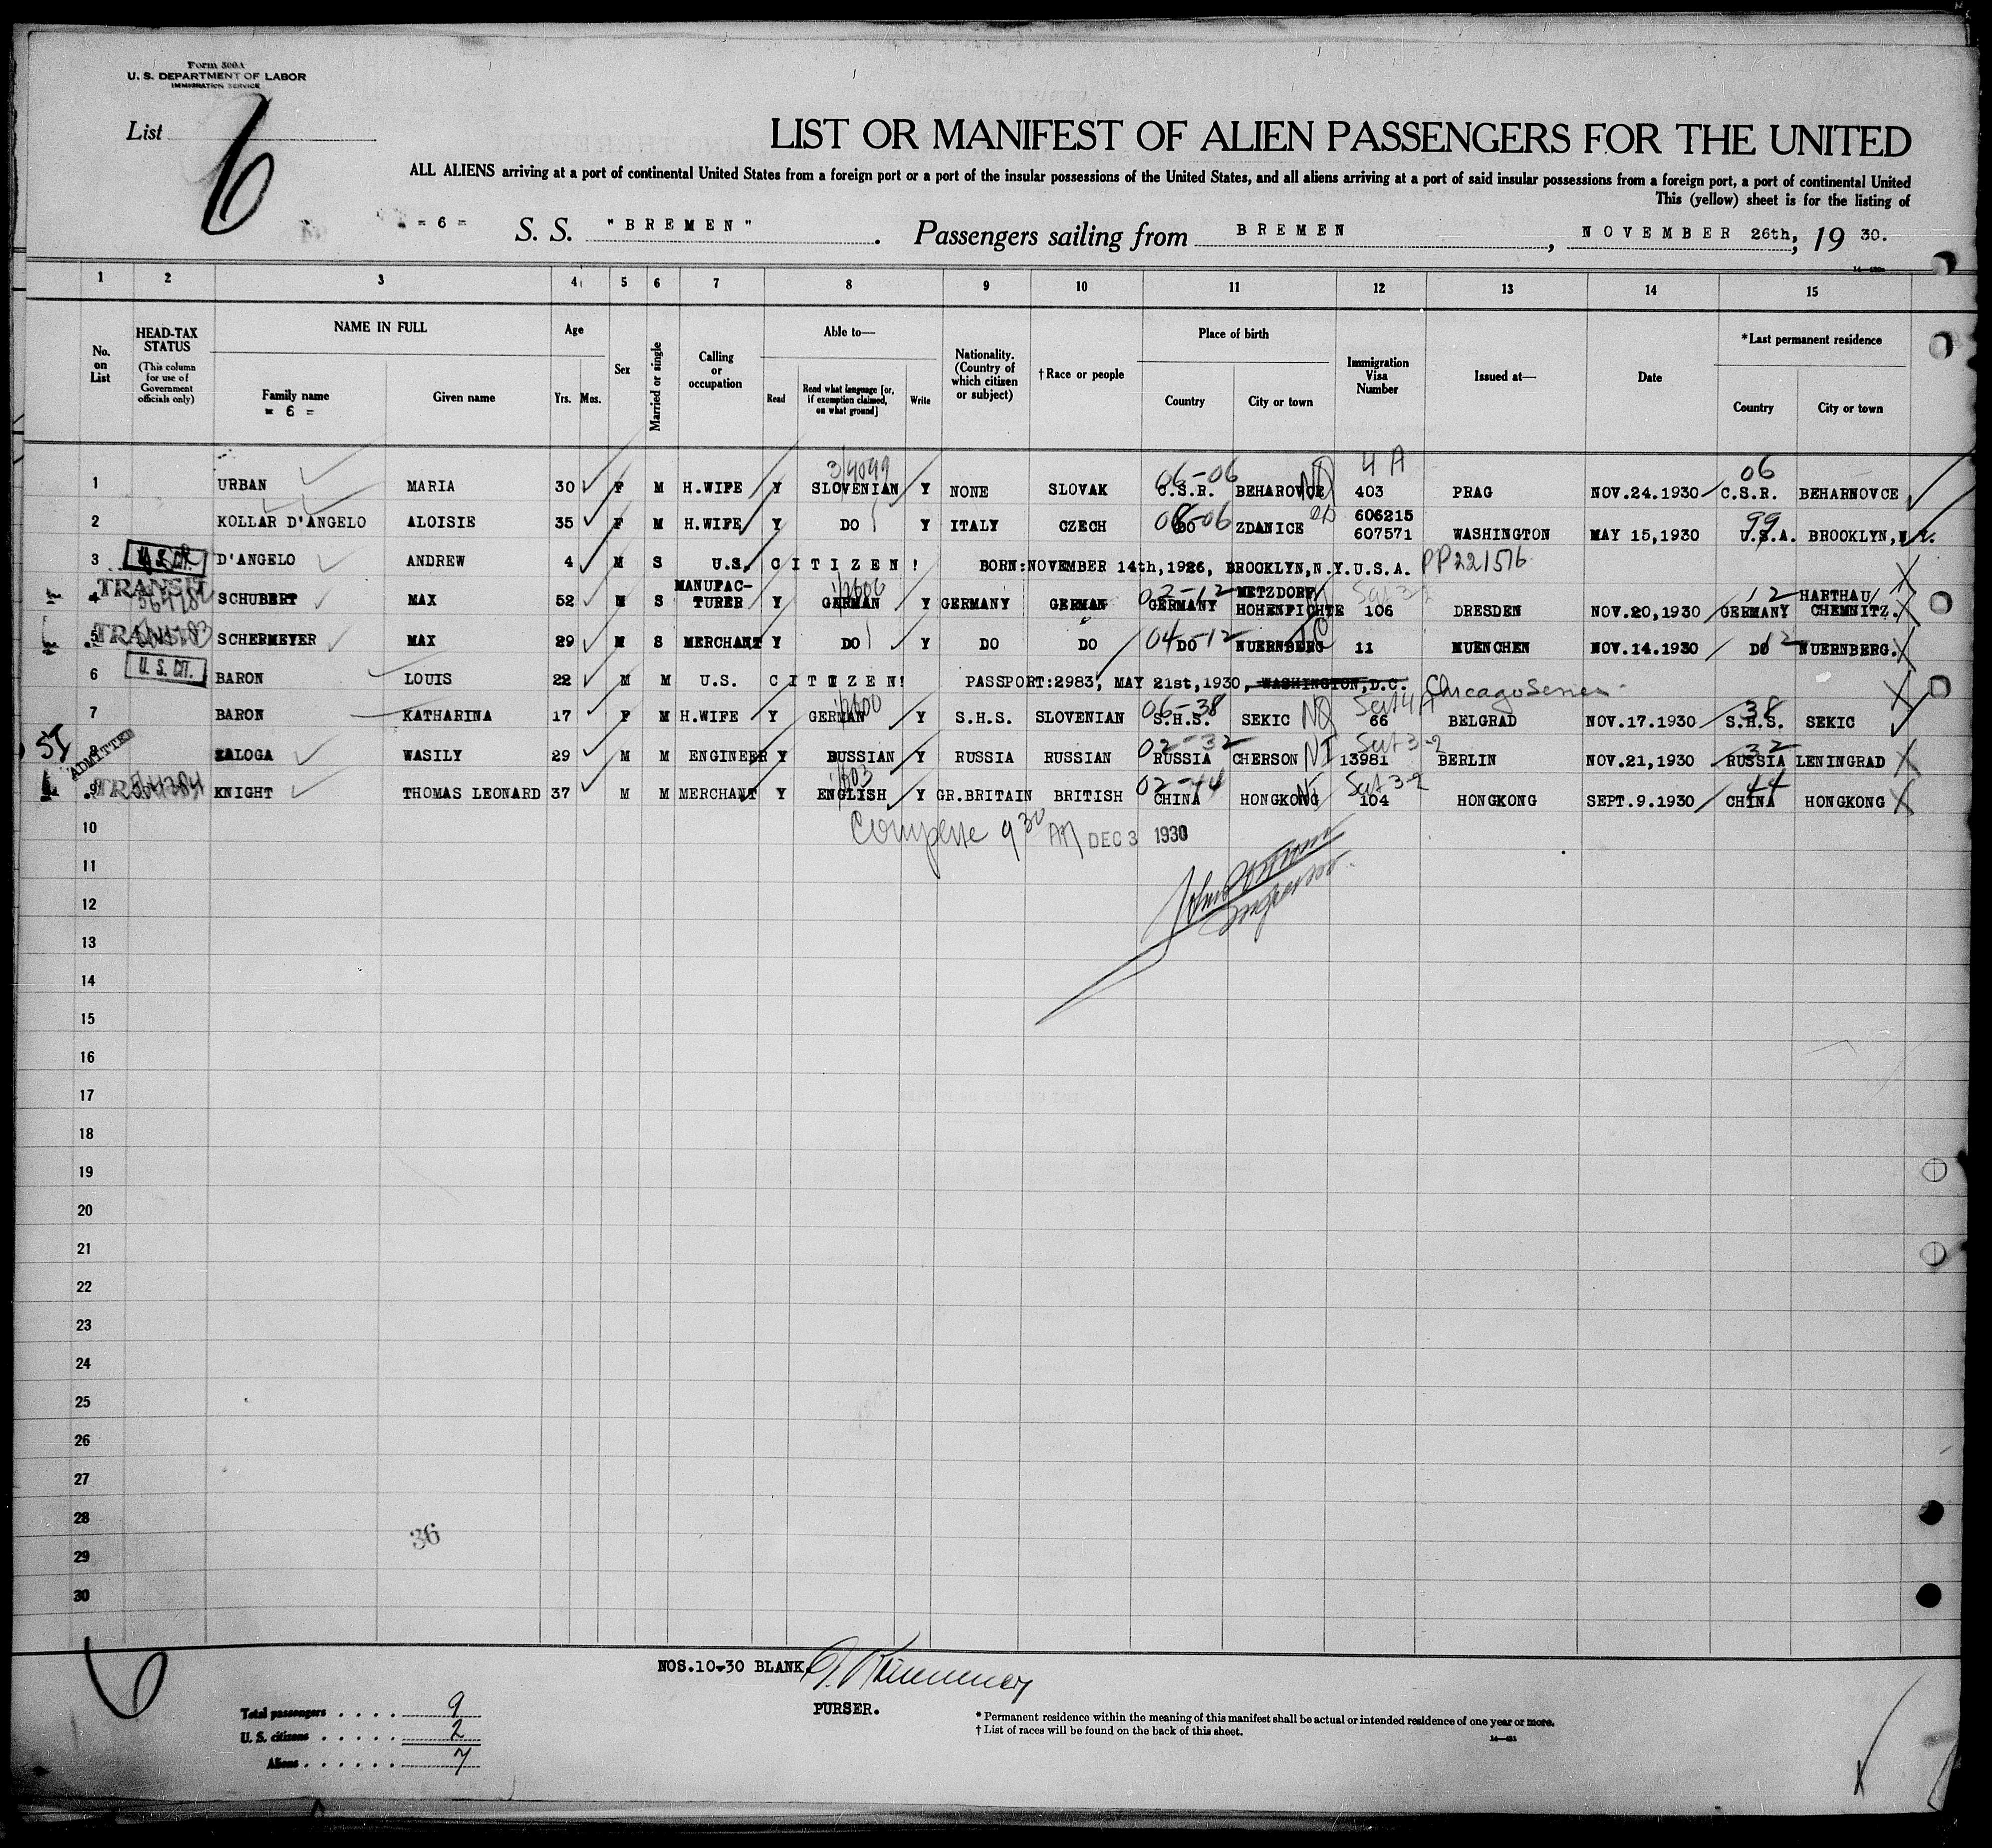 Form 500A
U. S. DEPARTMENT OF LABOR
IMMIGRATION SERVICE
List 6
LIST OR MANIFEST OF ALIEN PASSENGERS FOR THE UNITED
ALL ALIENS arriving at a port of continental United States from a foreign port or a port of the insular possessions of the United States, and all aliens arriving at a port of said insular possessions from a foreign port, a port of continental United
This (yellow) sheet is for the listing of
= 6 = S. S. "BREMEN". Passengers sailing from BREMEN, NOVEMBER 26th, 19 30.
1 2 3 4 5 6 7 8 9 10 11 12 13 14 15
No. on List
HEAD-TAX STATUS (This column for use of Government officials only)
NAME IN FULL
Family name
= 6 =
Given name
Age
Yrs. Mos.
Sex
Married or single
Calling or occupation
Able to—
Read
Read what language [or, if exemption claimed, on what ground]
Write
Nationality. (Country of which citizen or subject)
†Race or people
Place of birth
Country
City or town
Immigration Visa Number
Issued at—
Date
*Last permanent residence
Country
City or town
3/4099 06-06 NQ 4 A 06
1 URBAN MARIA 30 F M H.WIFE Y SLOVENIAN Y NONE SLOVAK C.S.R. BEHAROVCE 403 PRAG NOV.24.1930 C.S.R. BEHARNOVCE
2 KOLLAR D'ANGELO ALOISIE 35 F M H.WIFE Y DO Y ITALY CZECH DO ZDANICE 606215 607571 WASHINGTON MAY 15,1930 U.S.A. BROOKLYN,
99
3 U.S. CIT. D'ANGELO ANDREW 4 M S U.S. CITIZEN! BORN:NOVEMBER 14th,1926, BROOKLYN,N.Y.U.S.A. PP221576
4 TRANSIT SCHUBERT MAX 52 M S MANUFAC-TURER Y GERMAN Y GERMANY GERMAN GERMANY METZDORF HOHENFICHTE 106 DRESDEN NOV.20,1930 GERMANY HARTHAU CHEMNITZ.
02-12 12
5 TRANSIT SCHERMEYER MAX 29 M S MERCHANT Y DO Y DO DO DO NUERNBERG 11 MUENCHEN NOV.14.1930 DO NUERNBERG.
04-12 12
6 U. S. CIT. BARON LOUIS 22 M M U.S. CITIZEN! PASSPORT:2983, MAY 21st,1930, WASHINGTON,D.C. Chicago Series
7 BARON KATHARINA 17 F M H.WIFE Y GERMAN Y S.H.S. SLOVENIAN S.H.S. SEKIC 66 BELGRAD NOV.17.1930 S.H.S. SEKIC
06-38 NQ 38
8 SI ADMITTED ZALOGA WASILY 29 M M ENGINEER Y RUSSIAN Y RUSSIA RUSSIAN RUSSIA CHERSON 13981 BERLIN NOV.21,1930 RUSSIA LENINGRAD
02-32 NI 32
9 KNIGHT THOMAS LEONARD 37 M M MERCHANT Y ENGLISH Y GR.BRITAIN BRITISH CHINA HONGKONG 104 HONGKONG SEPT.9.1930 CHINA HONGKONG
02-44 Sect 3-2 44
10 9 30 AM DEC 3 1930
11
12
13
14
15
16
17
18
19
20
21
22
23
24
25
26
27
28
36
29
30
6
NOS.10-30 BLANK.
PURSER.
Total passengers . . . . 9
U. S. citizens . . . . . 2
Aliens . . . . . . 7
* Permanent residence within the meaning of this manifest shall be actual or intended residence of one year or more.
† List of races will be found on the back of this sheet.